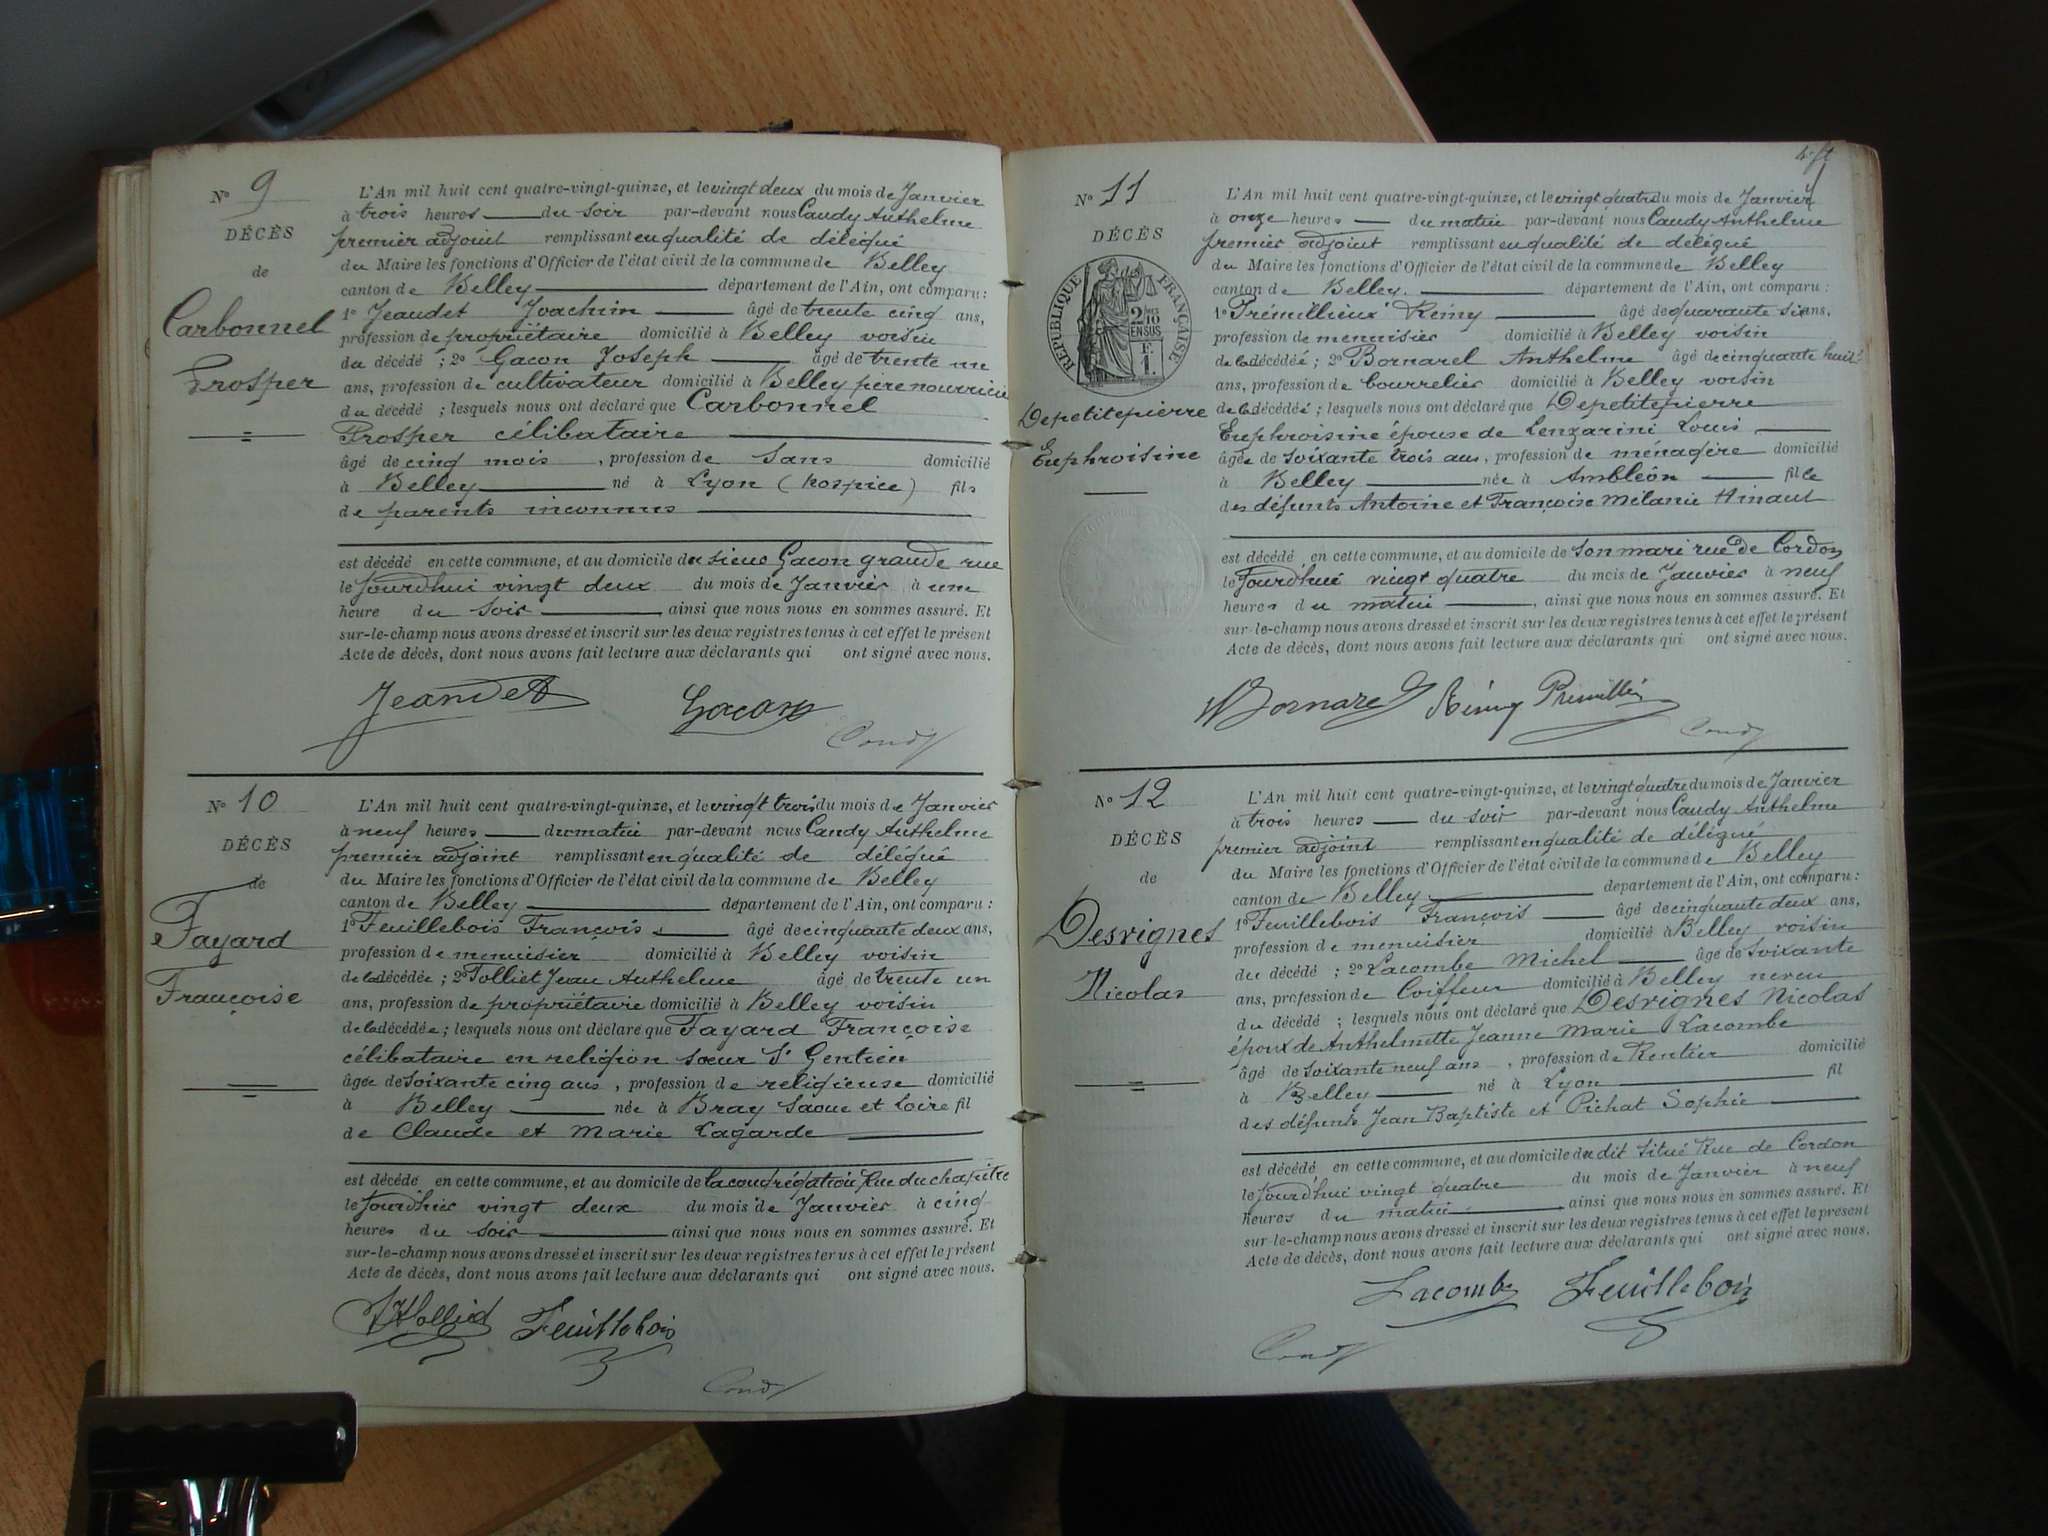 N° 9
DÉCÈS
de
Carbonnel
Prosper
L'An mil huit cent quatre-vingt-quinze, et le vingt deux du mois de Janvier
à trois heures du soir par-devant nous Caudy Anthelme
premier adjoint remplissant en qualité de délégué
du Maire les fonctions d'Officier de l'état civil de la commune de Belley
canton de Belley département de l'Ain, ont comparu :
1° Jeandet Joachim âgé de trente cinq ans,
profession de propriétaire domicilié à Belley voisin
du décédé ; 2° Gacon Joseph âgé de trente un
ans, profession de cultivateur domicilié à Belley père nourricier
du décédé ; lesquels nous ont déclaré que Carbonnel
Prosper célibataire
âgé de cinq mois , profession de sans domicilié
à Belley né à Lyon (hospice) fils
de parents inconnus
est décédé en cette commune, et au domicile du sieur Gacon grande rue
le Jourdhui vingt deux du mois de Janvier à une
heure du soir ainsi que nous nous en sommes assuré. Et
sur-le-champ nous avons dressé et inscrit sur les deux registres tenus à cet effet le présent
Acte de décès, dont nous avons fait lecture aux déclarants qui ont signé avec nous.
Jeandet Gacon
Caudy
N° 10
DÉCÈS
de
Fayard
Françoise
L'An mil huit cent quatre-vingt-quinze, et le vingt trois du mois de Janvier
à neuf heures du matin par-devant nous Caudy Anthelme
premier adjoint remplissant en qualité de délégué
du Maire les fonctions d'Officier de l'état civil de la commune de Belley
canton de Belley département de l'Ain, ont comparu :
1° Feuillebois François âgé de cinquante deux ans,
profession de menuisier domicilié à Belley voisin
de la décédée ; 2° Tolliet Jean Anthelme âgé de trente un
ans, profession de propriétaire domicilié à Belley voisin
de la décédée ; lesquels nous ont déclaré que Fayard Françoise
célibataire en religion sœur St Gentien
âgée de soixante cinq ans , profession de religieuse domicilié
à Belley née à Bray Saone et Loire fil
de Claude et Marie Lagarde
est décédé en cette commune, et au domicile de la congrégation Rue du chapitre
le Jourdhier vingt deux du mois de Janvier à cinq
heures du soir ainsi que nous nous en sommes assuré. Et
sur-le-champ nous avons dressé et inscrit sur les deux registres tenus à cet effet le présent
Acte de décès, dont nous avons fait lecture aux déclarants qui ont signé avec nous.
Feuillebois
Caudy
N° 11
DÉCÈS
de
RÉPUBLIQUE FRANÇAISE
2/10
EN SUS
F.
1.
Depetitepierre
Euphroisine
L'An mil huit cent quatre-vingt-quinze, et le vingt quatre du mois de Janvier
à onze heures du matin par-devant nous Caudy Anthelme
premier adjoint remplissant en qualité de délégué
du Maire les fonctions d'Officier de l'état civil de la commune de Belley
canton de Belley. département de l'Ain, ont comparu :
1° Prémillieux Rémy âgé de quarante six ans,
profession de menuisier domicilié à Belley voisin
de la décédée ; 2° Bornarel Anthelme âgé de cinquante huit
ans, profession de bourrelier domicilié à Belley voisin
de la décédée ; lesquels nous ont déclaré que Depetitepierre
Euphroisine épouse de Lenzarini Louis
âgée de soixante trois ans, profession de ménagère domicilié
à Belley née à Ambléon fille
des défunts Antoine et Françoise Mélanie Hinaut
est décédé en cette commune, et au domicile de son mari rue de Cordon
le Jourdhui vingt quatre du mois de Janvier à neuf
heures du matin , ainsi que nous nous en sommes assuré. Et
sur-le-champ nous avons dressé et inscrit sur les deux registres tenus à cet effet le présent
Acte de décès, dont nous avons fait lecture aux déclarants qui ont signé avec nous.
Bornarel Rémy
Caudy
N° 12
DÉCÈS
de
Desvignes
Nicolas
L'An mil huit cent quatre-vingt-quinze, et le vingt quatre du mois de Janvier
à trois heures du soir par-devant nous Caudy Anthelme
premier adjoint remplissant en qualité de délégué
du Maire les fonctions d'Officier de l'état civil de la commune de Belley
canton de Belley. département de l'Ain, ont comparu :
1° Feuillebois François âgé de cinquante deux ans,
profession de menuisier domicilié à Belley voisin
du décédé ; 2° Lacombe Michel âgé de soixante
ans, profession de Coiffeur domicilié à Belley neveu
du décédé ; lesquels nous ont déclaré que Desvignes Nicolas
époux de Anthelmette Jeanne Marie Lacombe
âgé de soixante neuf ans , profession de Rentier domicilié
à Belley né à Lyon fil
des défunts Jean Baptiste et Pichat Sophie
est décédé en cette commune, et au domicile du dit situé Rue de Cordon
le Jourdhui vingt quatre du mois de Janvier à neuf
heures du matin ainsi que nous nous en sommes assuré. Et
sur-le-champ nous avons dressé et inscrit sur les deux registres tenus à cet effet le présent
Acte de décès, dont nous avons fait lecture aux déclarants qui ont signé avec nous.
Lacombe Feuillebois
Caudy